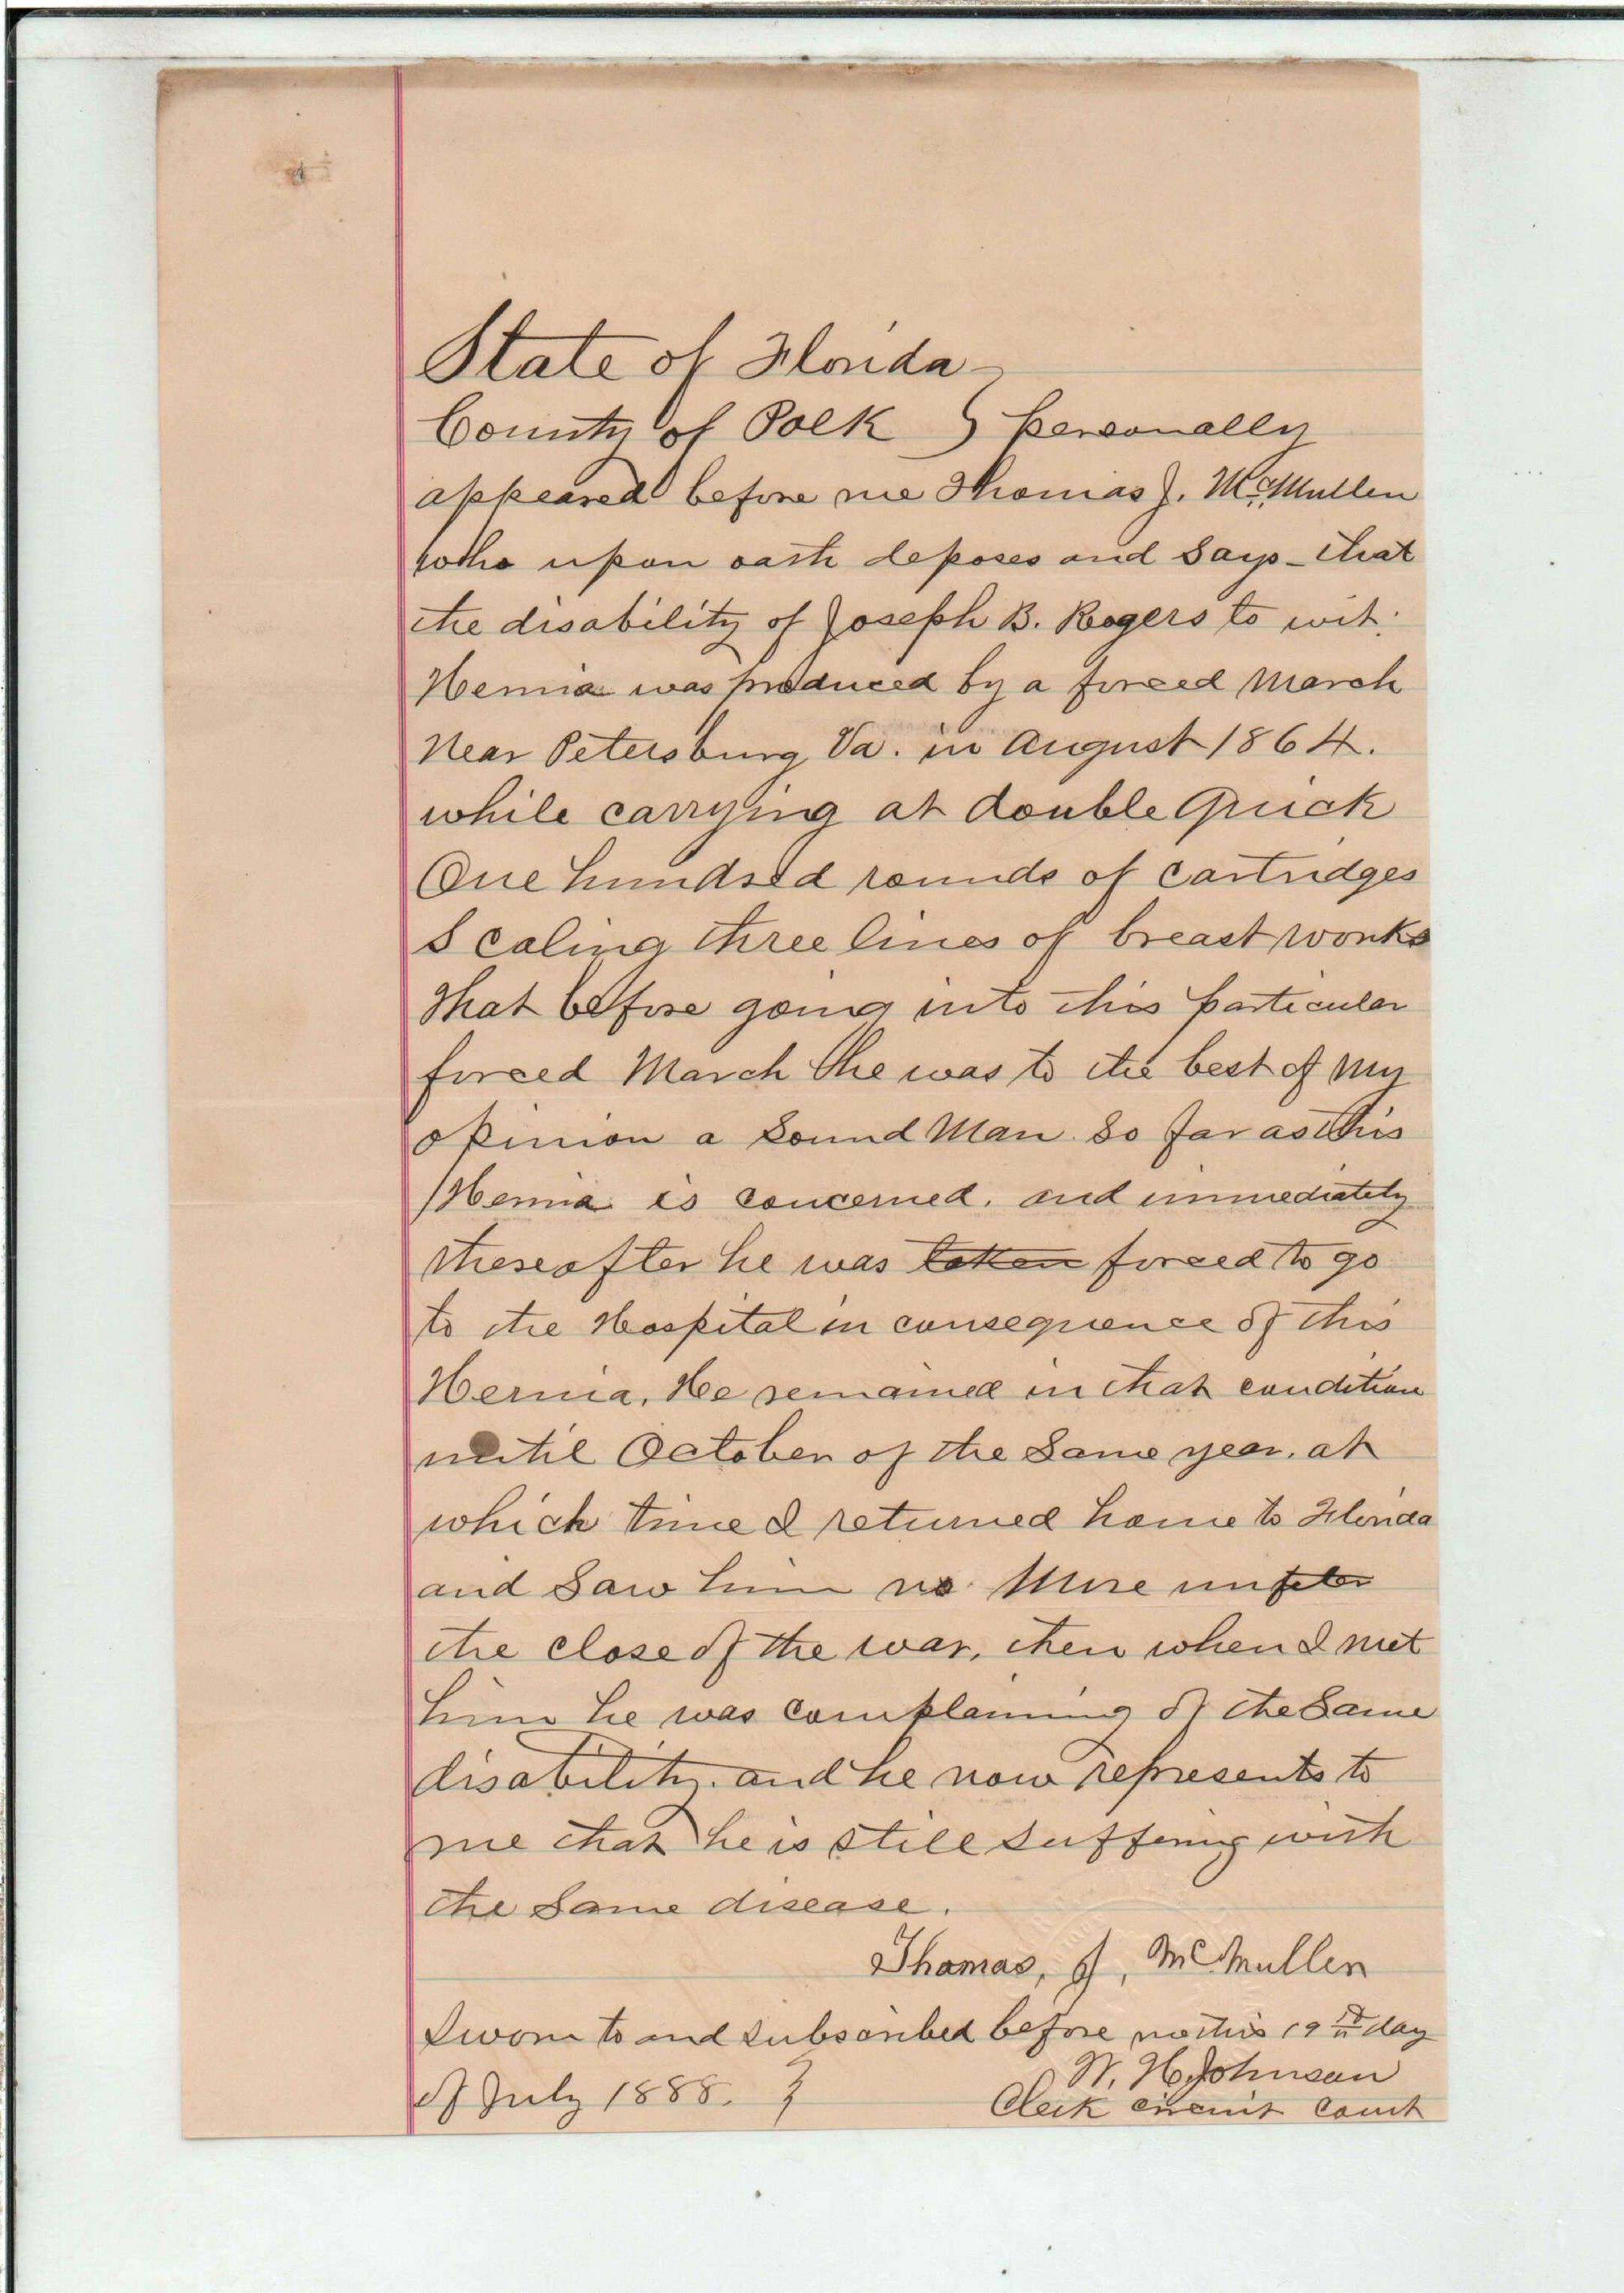 State of Florida
County of Polk } personally
appeared before me Thomas J. McMullen
who upon oath deposes and Says - that
the disability of Joseph B. Rogers to wit:
Hernia was produced by a forced March
Near Petersburg Va. in August 1864.
while carrying at double Quick
One hundred rounds of cartridges
Scaling three lines of breast works
That before going into this particular
forced March he was to the best of my
opinion a Sound Man So far as this
Hernia is concerned. and immediately
thereafter he was taken forced to go
to the Hospital in consequence of this
Hernia, He remained in that condition
until October of the Same year. at
which time I returned home to Florida
and Saw him no More
the close of the war, then when I met
him he was complaining of the Same
disability. and he now represents to
me that he is still suffering with
the Same disease.
Thomas, J, McMullen
Sworn to and subscribed before me this 19th day
of July 1888. }
W. H. Johnson
Clerk circuit court